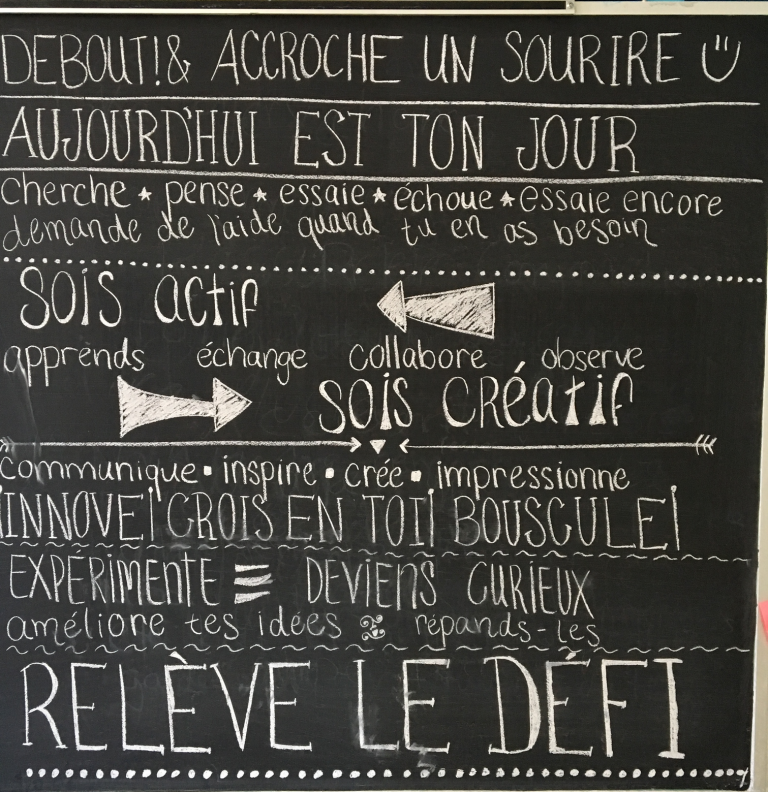 DEBOUT!& ACCROCHE UN SOURIRE
AUJOURD'HUI EST TON JOUR
cherche * pense * essaie * échoue * essaie encore
demande de l'aide quand tu en as besoin
SOIS actif
apprends échange collabore observe
SOIS CRÉATIF
communique ▪ inspire ▪ crée ▪ impressionne
INNOVE! CROIS EN TOI! BOUSCULE!
EXPÉRIMENTE = DEVIENS CURIEUX
améliore tes idées & répands-les
RELÈVE LE DÉFI